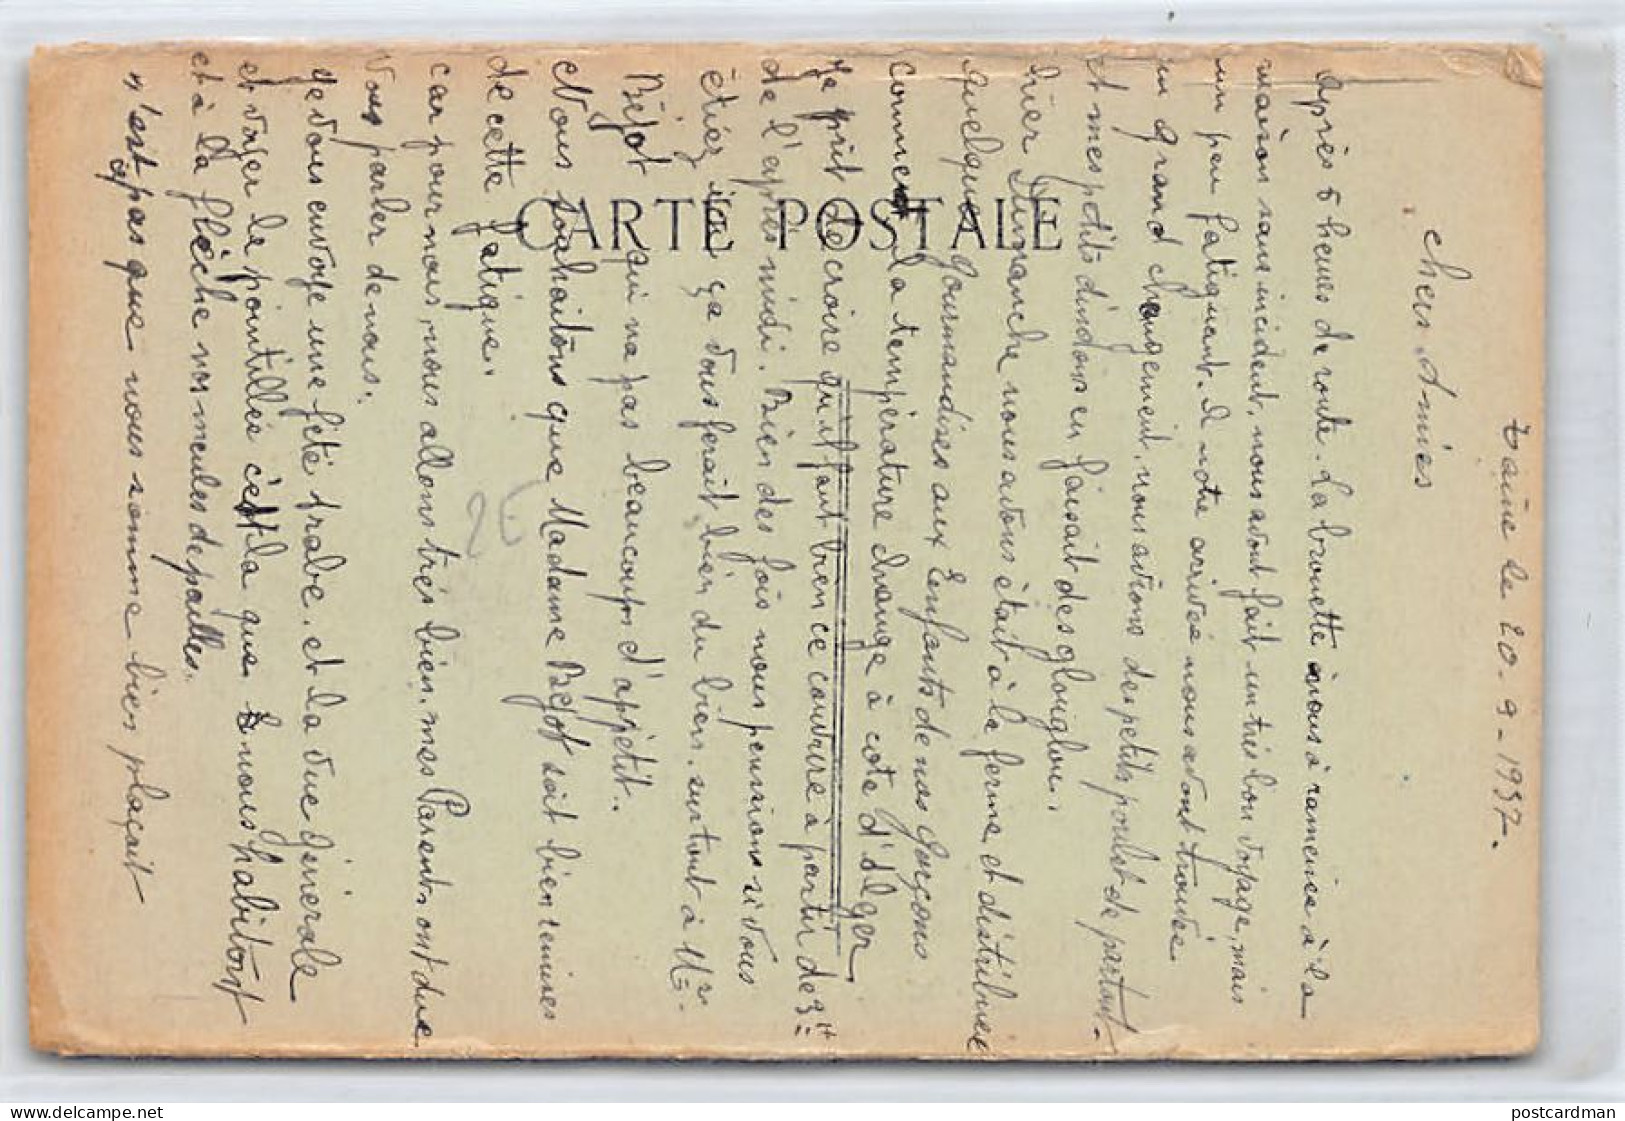 le 20-9-1937-
Chers Amies
Après 5 heures de route. La brouette à nous à ramenée à la
maison sans incident, nous avont fait un très bon voyage, mais
un peu fatiguant. A notre arrivée nous avont trouvée
un grand changement, nous avions des petits poulet de partout-
et mes petits dindons en faisait des glouglou.
hier Dimanche nous avons était à la ferme et distribuée
quelques gourmandises aux Enfants de nos garçons
Comme la température change à côte d'Alger
Je prit de croire qu'il faut bien ce couvrir à partir de 3H
de l'après midi. Bien des fois nous pensions si vous
étiez ici ça vous ferait bien du bien. surtout à Mr.
Béjot qui na pas beaucoup d'appétit..
Nous souhaitons que Madame Béjot soit bien remises
de cette fatigue.
car pour nous, nous allons très bien, mes Parents ont due
Vous parler de nous.
Je vous envoye une fête Arabe. et la vue générale
et voyer le pointillée cèst la que nous habitont
et à la flèche nos meules de pailles.
n'est ce pas que nous somme bien plaçait
CARTE POSTALE
postcardman